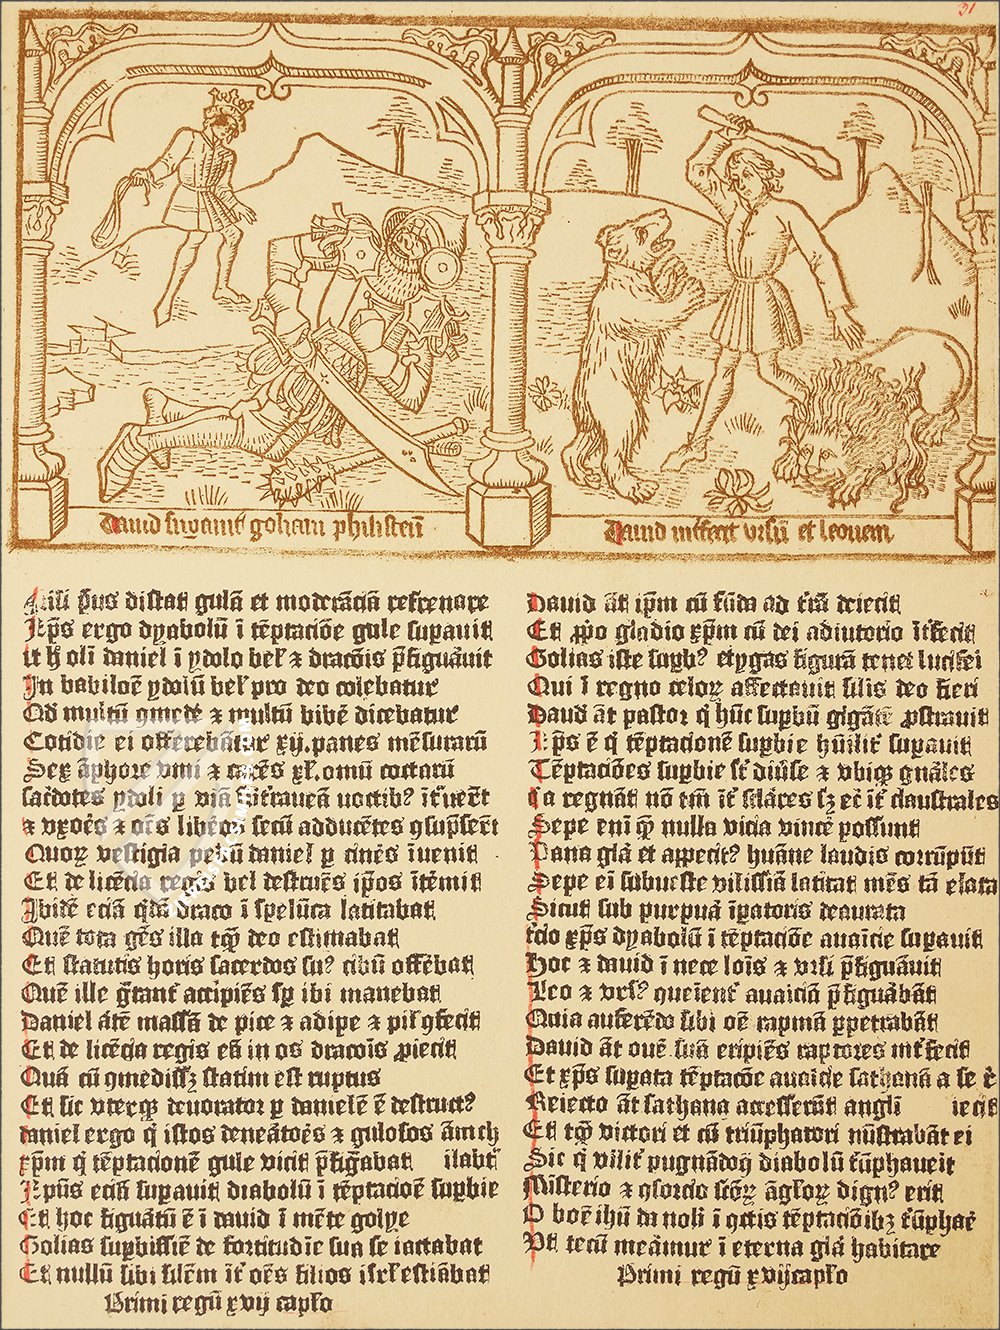 31
Dauid suꝑauit goliam philisteū
Dauid interfecit vrsū et leonem
Nili pꝰus distat gulā et moderāciā refrenare
Xp̄s ergo dyabolū ī tēptaciōe gule suꝑauit
ut h̄ olī daniel ī ydolo bel ⁊ dracōis p̄figurauit
In babiloē ydolū bel pro deo colebatur
Qd multū ꝯmedē ⁊ multū bibē dicebatur
Cotidie ei offerebātur xij. panes mēsurarū
Sex āphore vini ⁊ carēs xl. omū coctarū
sacdotes ydoli ꝑ viā subtraneā noctibꝰ ītrāuert
⁊ vxoēs ⁊ oēs liberos secū adducētes ꝯsūpsert
Quoꝝ vestigia pedū daniel ꝑ cinēs īuenit
Et de licēcia regis bel destruēs ip̄os ītemit
Ibidē eciā qdā draco ī spelūca latitabat
Quē tota gēs illa tqꝫ deo estimabat
Et statutis horis sacerdos suꝰ cibū offēbat
Quē ille gtant accipiēs sꝑ ibi manebat
Daniel ātē massā de pice ⁊ adipe ⁊ pil ꝯfecit
Et de licēcia regis eā in os dracōis ꝓiecit
Quā cū ꝯmedissꝫ statim est ruptus
Et sic vterqꝫ deuorator ꝑ danielē ē destructꝰ
daniel ergo q̄ istos
xp̄m q̄ tēptacionē gule vicit p̄figabat ilabt
Xpūs eciā suꝑauit diabolū ī tēptacioē suꝑbie
Et hoc figuātū ē ī dauid ī mēte golye
Golias suꝑbissiē de fortitudīe sua se iactabat
Et nullū sibi silēm īt oēs filios isrl estiābat
Primi regū xvij caplo
Dauid āt ip̄m cū fūda ad t̄rā deiecit
Et ꝓpo gladio xp̄m cū dei adiutorio īt̄fecit
Golias iste suꝑbꝰ etygas figurā tenet luciferi
Qui ī regno celoꝝ affectauit silis deo fieri
Dauid āt pastor q̄ hūc suꝑbū gigātē ꝓstrauit
Xp̄s ē q̄ tēptacionē suꝑbie hūilit suꝑauit
Tēptaciōes suꝑbie st̄ diūse ⁊ vbiqꝫ gnāles
q̄a regnāt nō tm̄ īt sclāres sꝫ ec̄ īt claustrales
Sepe enī qꝫ nulla vicia vincē possunt
Vana glā et appecitꝰ huāne laudis corrūpūt
Sepe eī sub ueste vilissiā latitat mēs tā elata
Sicut sub purpuā īꝑatoris deaurata
tcio xp̄s dyabolū ī tēptaciōe auaīcie suꝑauit
Hoc ⁊ dauid ī nece loīs ⁊ vrsi p̄figuāuit
Leo ⁊ vrsꝰ queīent auaiciā p̄figuābāt
Quia auferēdo sibi oē rapinā ꝑpetrabāt
Dauid āt ouē suā eripiēs raptores int̄fecit
Et xp̄s suꝑata tēptacōe auaicie sathanā a se
Reiecto āt sathana accesserūt angli iecit
Et tqꝫ victori et cū triūphatori mīstrabāt ei
Sic q̄ vilit pugnādo diabolū tūphaueit
Misterio ⁊ ꝯsorcio scōꝝ āgloꝝ dignꝰ erit
O boē ihū da nobī ī ꝯctis tēptaciōibꝫ tūphaē
Vt tecū meāmur ī eterna glā habitare
Primi regū xvij caplo